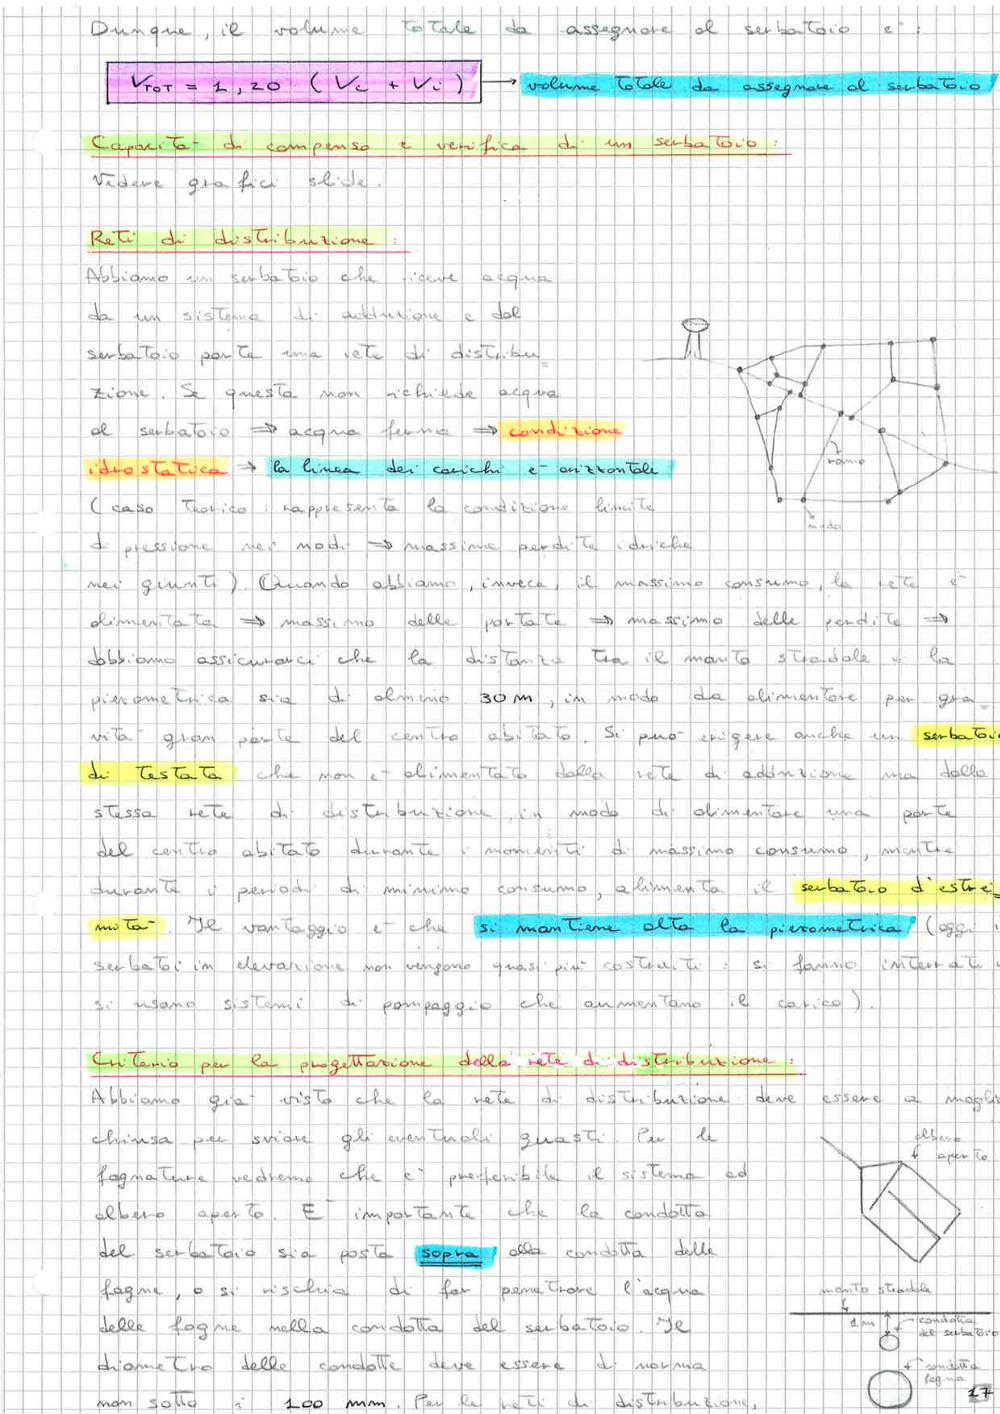 Dunque, il volume totale da assegnare al serbatoio e' :
VTOT = 1,20 (Vc + Vi) → volume totale da assegnare al serbatoio
Capacita' di compenso e verifica di un serbatoio :
Vedere grafici slide.
Reti di distribuzione :
Abbiamo un serbatoio che riceve acqua
da un sistema di adduzione e dal
serbatoio parte una rete di distribu
zione. Se questa non richiede acqua
al serbatoio ⇒ acqua ferma ⇒ condizione
idrostatica → la linea dei carichi e' orizzontale
(caso teorico : rappresenta la condizione limite
di pressione nei nodi ⇒ massime perdite idriche
nei giunti). Quando abbiamo, invece, il massimo consumo, la rete e'
alimentata ⇒ massimo delle portate ⇒ massimo delle perdite ⇒
dobbiamo assicurarci che la distanza tra il manto stradale e la
piezometrica sia di almeno 30 m, in modo da alimentare per gra_
vita' gran parte del centro abitato. Si puo' erigere anche un serbatoio
di testata che non e' alimentato dalla rete di adduzione ma dalla
stessa rete di distribuzione, in modo di alimentare una parte
del centro abitato durante i momenti di massimo consumo, mentre
durante i periodi di minimo consumo, alimenta il serbatoio d'estre
mita'. Il vantaggio e' che si mantiene alta la piezometrica (oggi i
serbatoi in elevazione non vengono quasi più costruiti : si fanno interrati e
si usano sistemi di pompaggio che aumentano il carico).
ramo
nodo
Criterio per la progettazione della rete di distribuzione :
Abbiamo gia' visto che la rete di distribuzione deve essere a maglia
chiusa per sviare gli eventuali guasti. Per le
fognature vedremo che e' preferibile il sistema ad
albero aperto. E' importante che la condotta
del serbatoio sia posta sopra alla condotta delle
fogne, o si rischia di far penetrare l'acqua
delle fogne nella condotta del serbatoio. Il
diametro delle condotte deve essere di norma
non sotto i 100 mm. Per le reti di distribuzione,
albero
aperto
manto stradale
1 m
condotta
del serbatoio
condotta
fogna
17